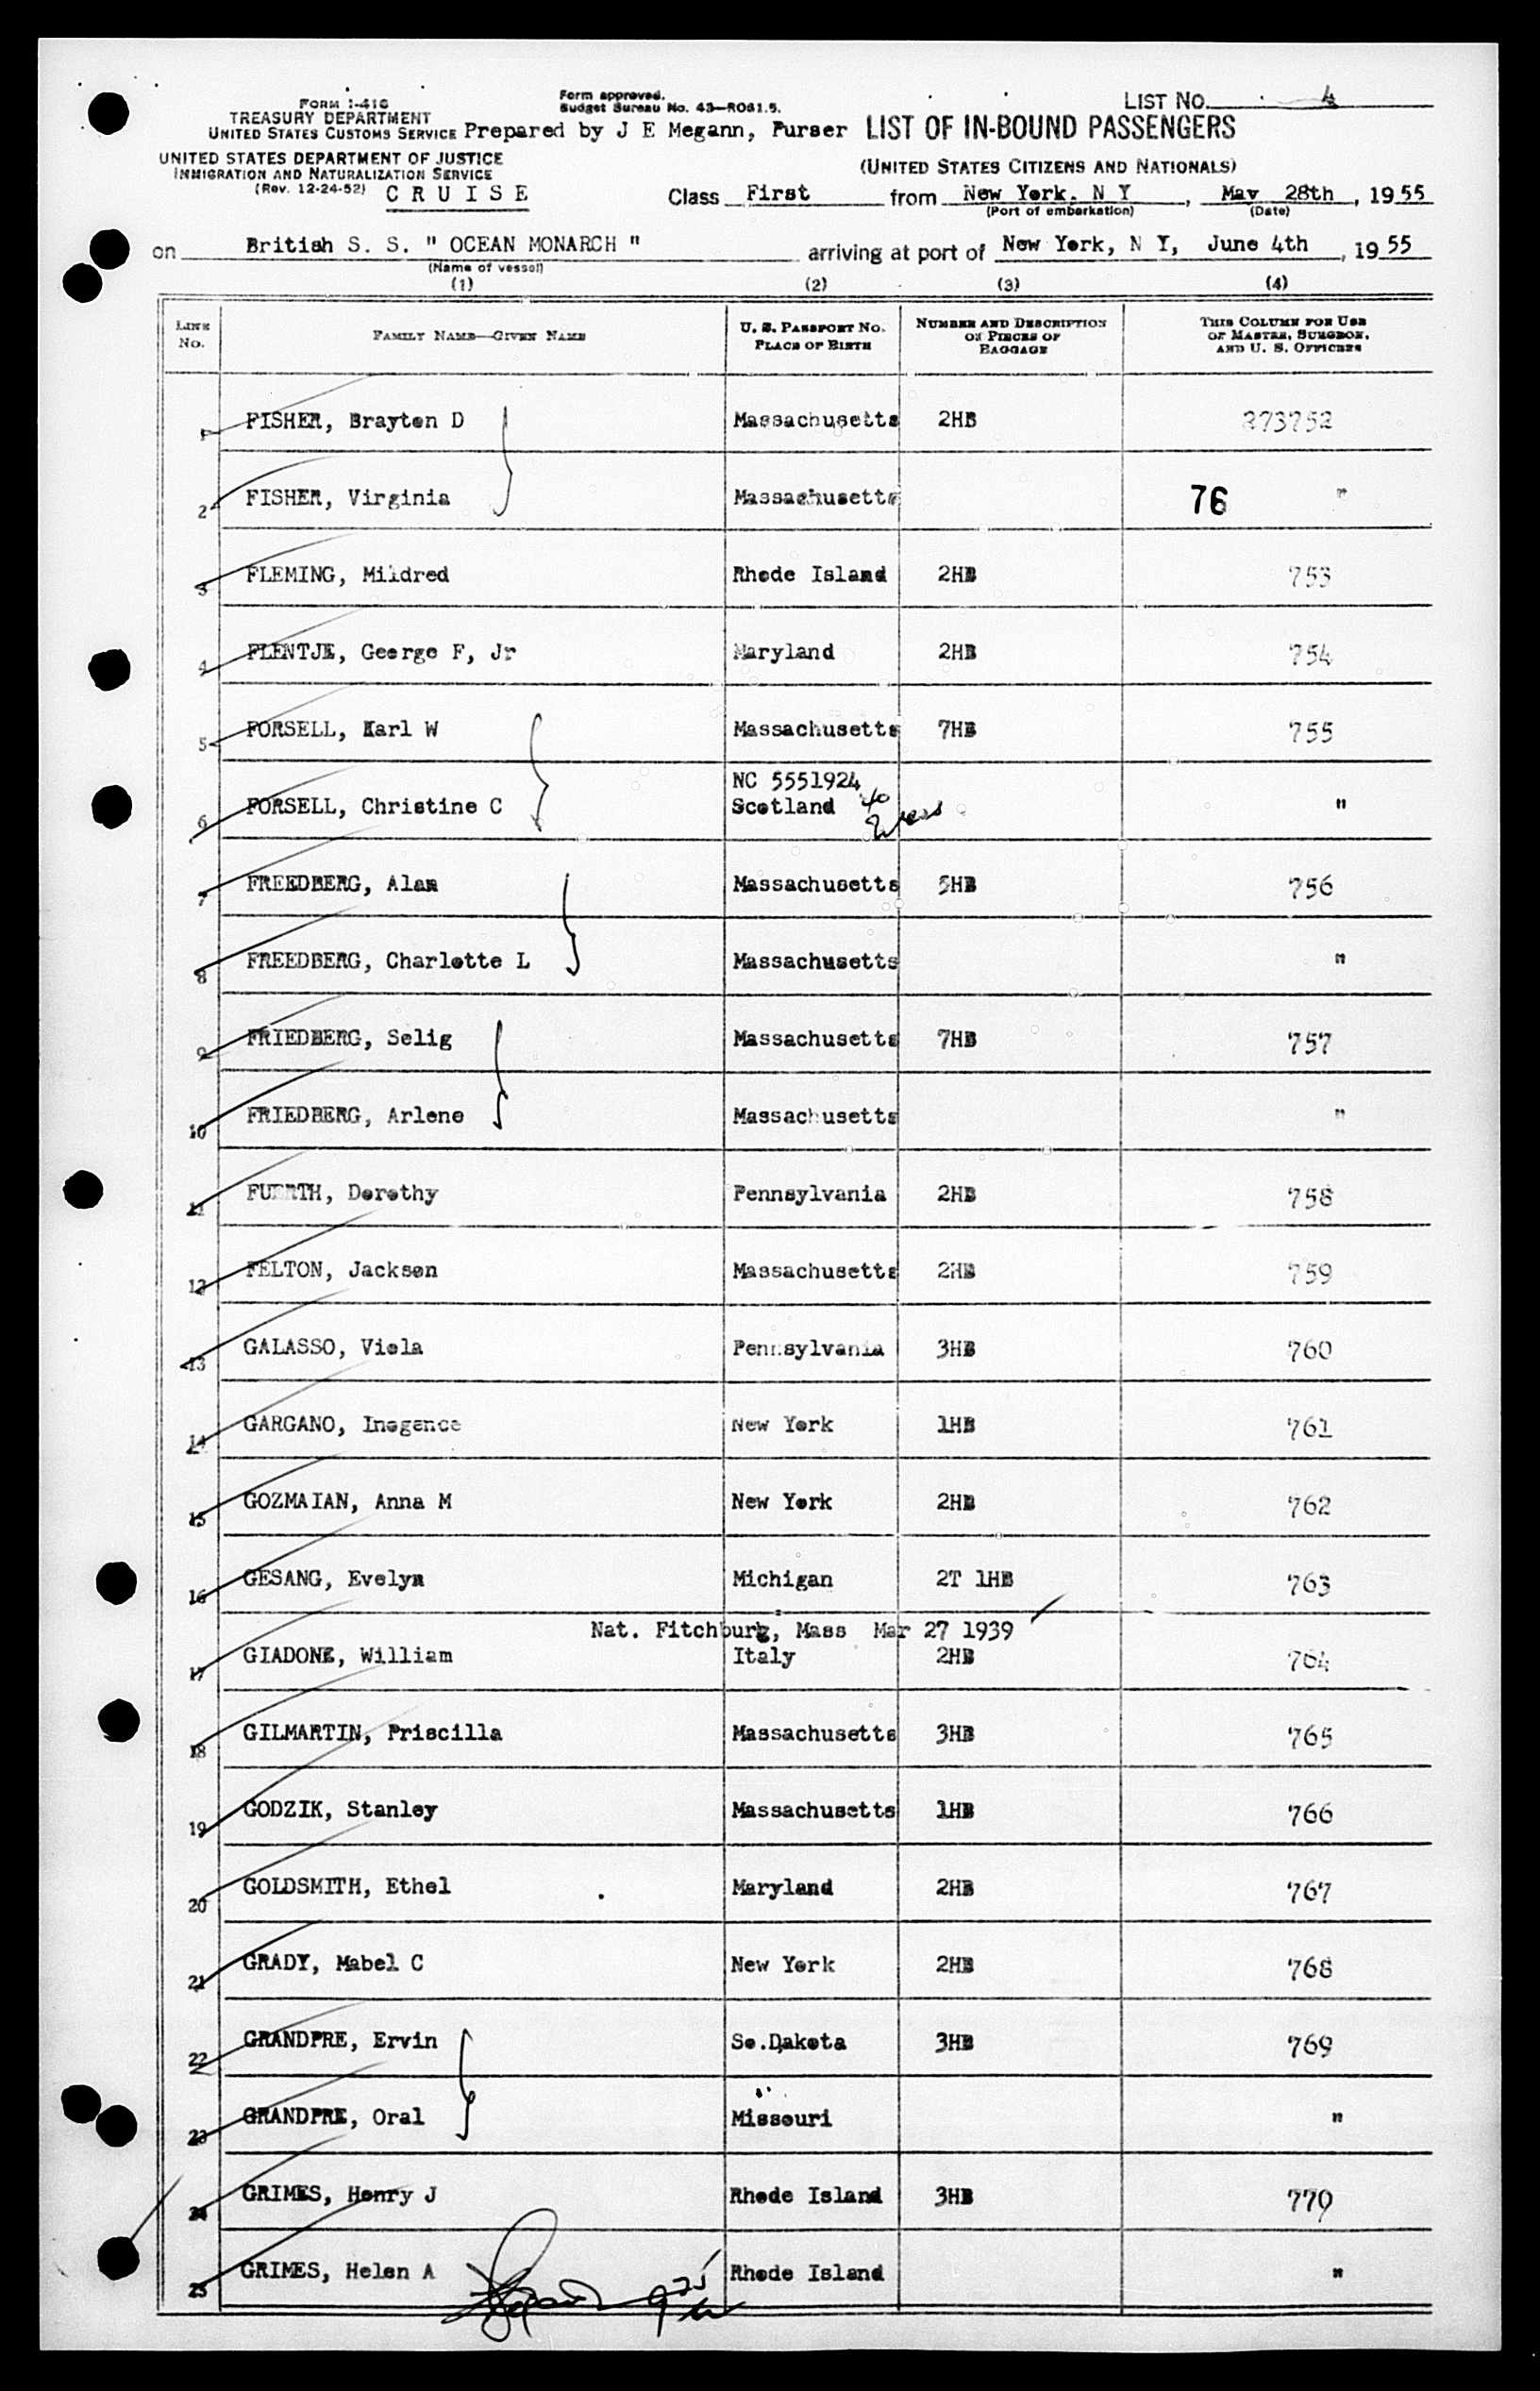 FORM I-416
TREASURY DEPARTMENT
UNITED STATES CUSTOMS SERVICE
UNITED STATES DEPARTMENT OF JUSTICE
IMMIGRATION AND NATURALIZATION SERVICE
(Rev. 12-24-52)
CRUISE
Form approved.
Budget Bureau No. 43—R061.5.
Prepared by J E Megann, Purser
LIST NO. 4
LIST OF IN-BOUND PASSENGERS
(UNITED STATES CITIZENS AND NATIONALS)
Class First from New York, N Y, May 28th, 1955
(Port of embarkation) (Date)
on British S. S. " OCEAN MONARCH " arriving at port of New York, N Y, June 4th, 1955
(Name of vessel)
(1) (2) (3) (4)
LINE No. FAMILY NAME—GIVEN NAME U. S. PASSPORT NO. PLACE OF BIRTH NUMBER AND DESCRIPTION OF PIECES OF BAGGAGE THIS COLUMN FOR USE OF MASTER, SURGEON, AND U. S. OFFICERS
1 FISHER, Brayton D Massachusetts 2HB 273752
2 FISHER, Virginia Massachusetts 76 "
3 FLEMING, Mildred Rhode Island 2HB 753
4 FLENTJE, George F, Jr Maryland 2HB 754
5 FORSELL, Karl W Massachusetts 7HB 755
NC 5551924
6 FORSELL, Christine C Scotland "
7 FREEDBERG, Alan Massachusetts 5HB 756
8 FREEDBERG, Charlotte L Massachusetts "
9 FRIEDBERG, Selig Massachusetts 7HB 757
10 FRIEDBERG, Arlene Massachusetts "
11 FUERTH, Dorothy Pennsylvania 2HB 758
12 FELTON, Jackson Massachusetts 2HB 759
13 GALASSO, Viola Pennsylvania 3HB 760
14 GARGANO, Inogence New York 1HB 761
15 GOZMAIAN, Anna M New York 2HB 762
16 GESANG, Evelyn Michigan 2T 1HB 763
Nat. Fitchburg, Mass Mar 27 1939
17 GIADONE, William Italy 2HB 764
18 GILMARTIN, Priscilla Massachusetts 3HB 765
19 GODZIK, Stanley Massachusetts 1HB 766
20 GOLDSMITH, Ethel Maryland 2HB 767
21 GRADY, Mabel C New York 2HB 768
22 GRANDPRE, Ervin So.Dakota 3HB 769
23 GRANDPRE, Oral Missouri "
24 GRIMES, Henry J Rhode Island 3HB 770
25 GRIMES, Helen A Rhode Island "